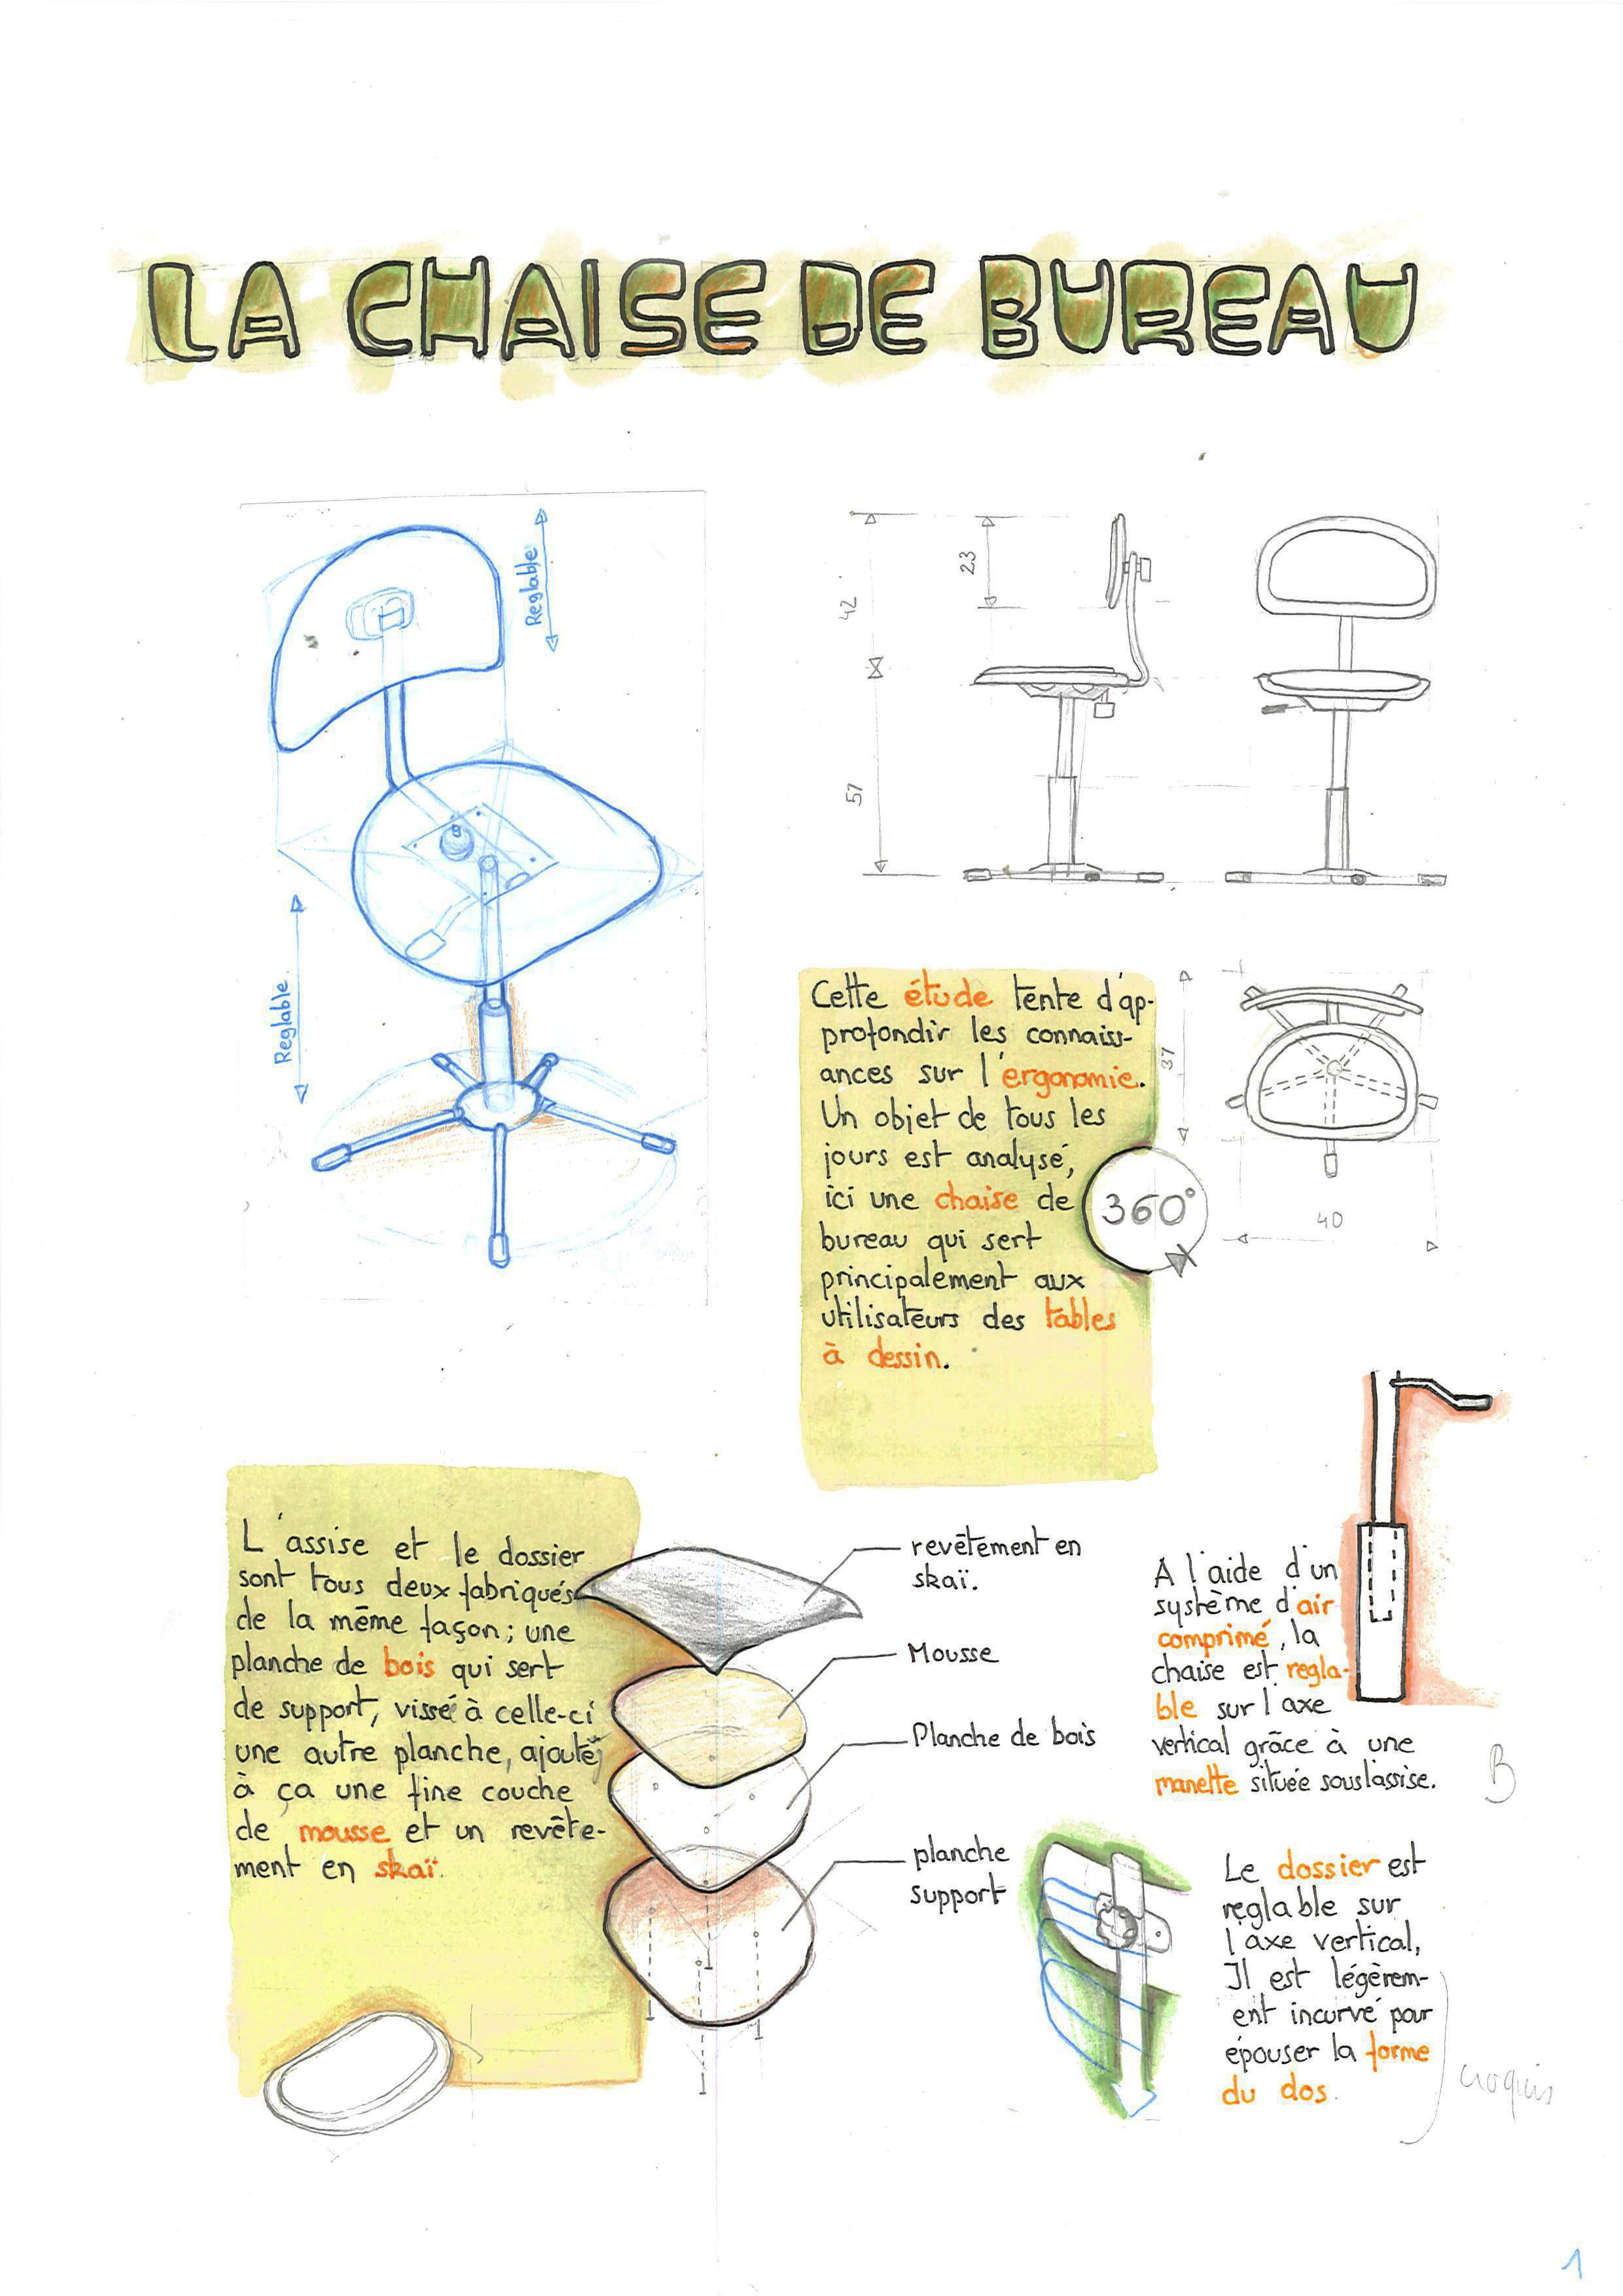 LA CHAISE DE BUREAU
Reglable
Reglable
42
23
57
Cette étude tente d'ap-
profondir les connaiss-
ances sur l'ergonomie.
Un objet de tous les
jours est analysé,
ici une chaise de
bureau qui sert
principalement aux
utilisateurs des tables
à dessin.
37
360°
40
L'assise et le dossier
sont tous deux fabriqués
de la même façon; une
planche de bois qui sert
de support, vissé à celle-ci
une autre planche, ajouté
à ça une fine couche
de mousse et un revête-
ment en skaï.
revêtement en
skaï.
Mousse
Planche de bois
planche
support
A l'aide d'un
système d'air
comprimé, la
chaise est regla-
ble sur l'axe
vertical grâce à une
manette située sous lassise.
B
Le dossier est
reglable sur
l'axe vertical,
Il est légèrem-
ent incurvé pour
épouser la forme
du dos.
croquis
1